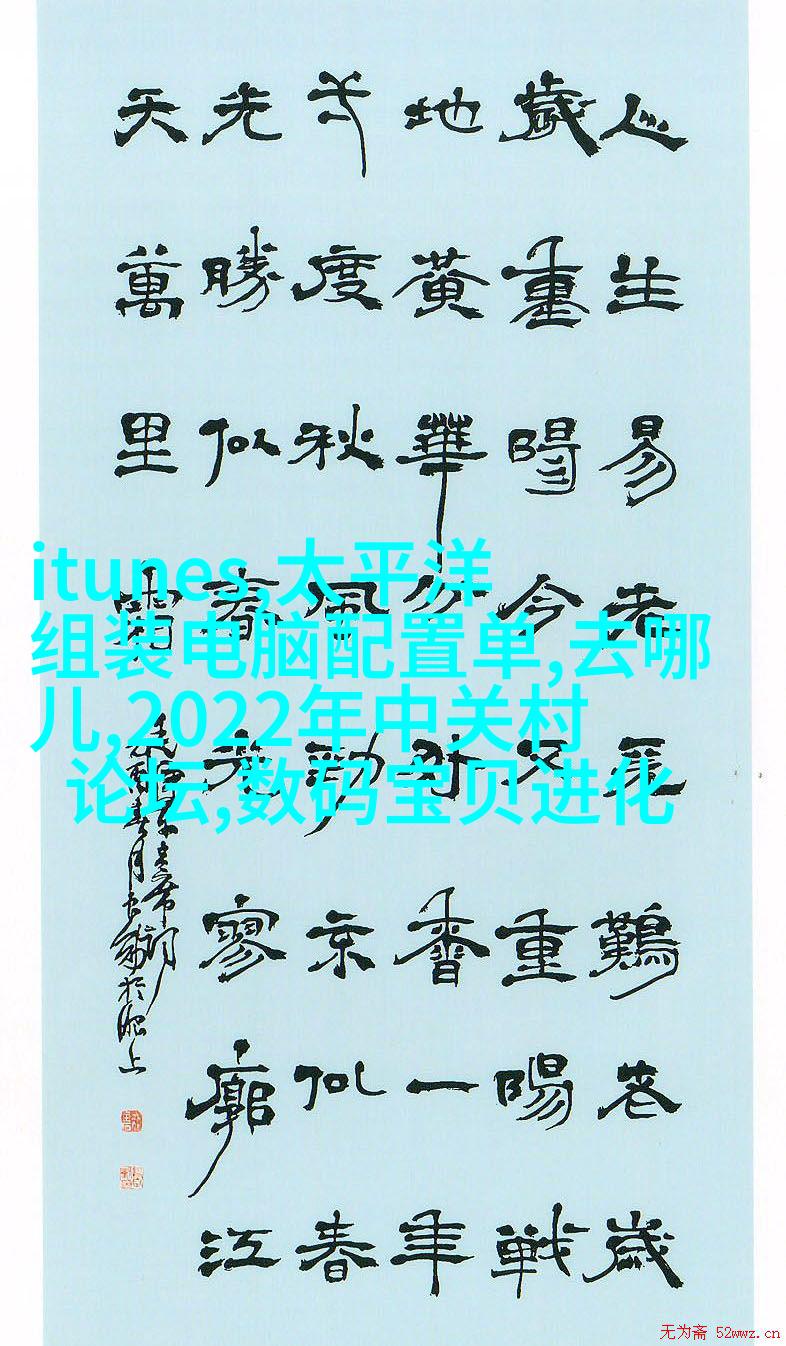 人生易老天難老歲
歲重陽今又重陽戰
地黃華分外香一年
弌度秋風勁不似春
光勝似春光寥廓江
天萬里霜
itunes,太平洋
组装电脑配置单,去哪
儿,2022年中关村
论坛,数码宝贝进化
无为斋 52wwz.cn